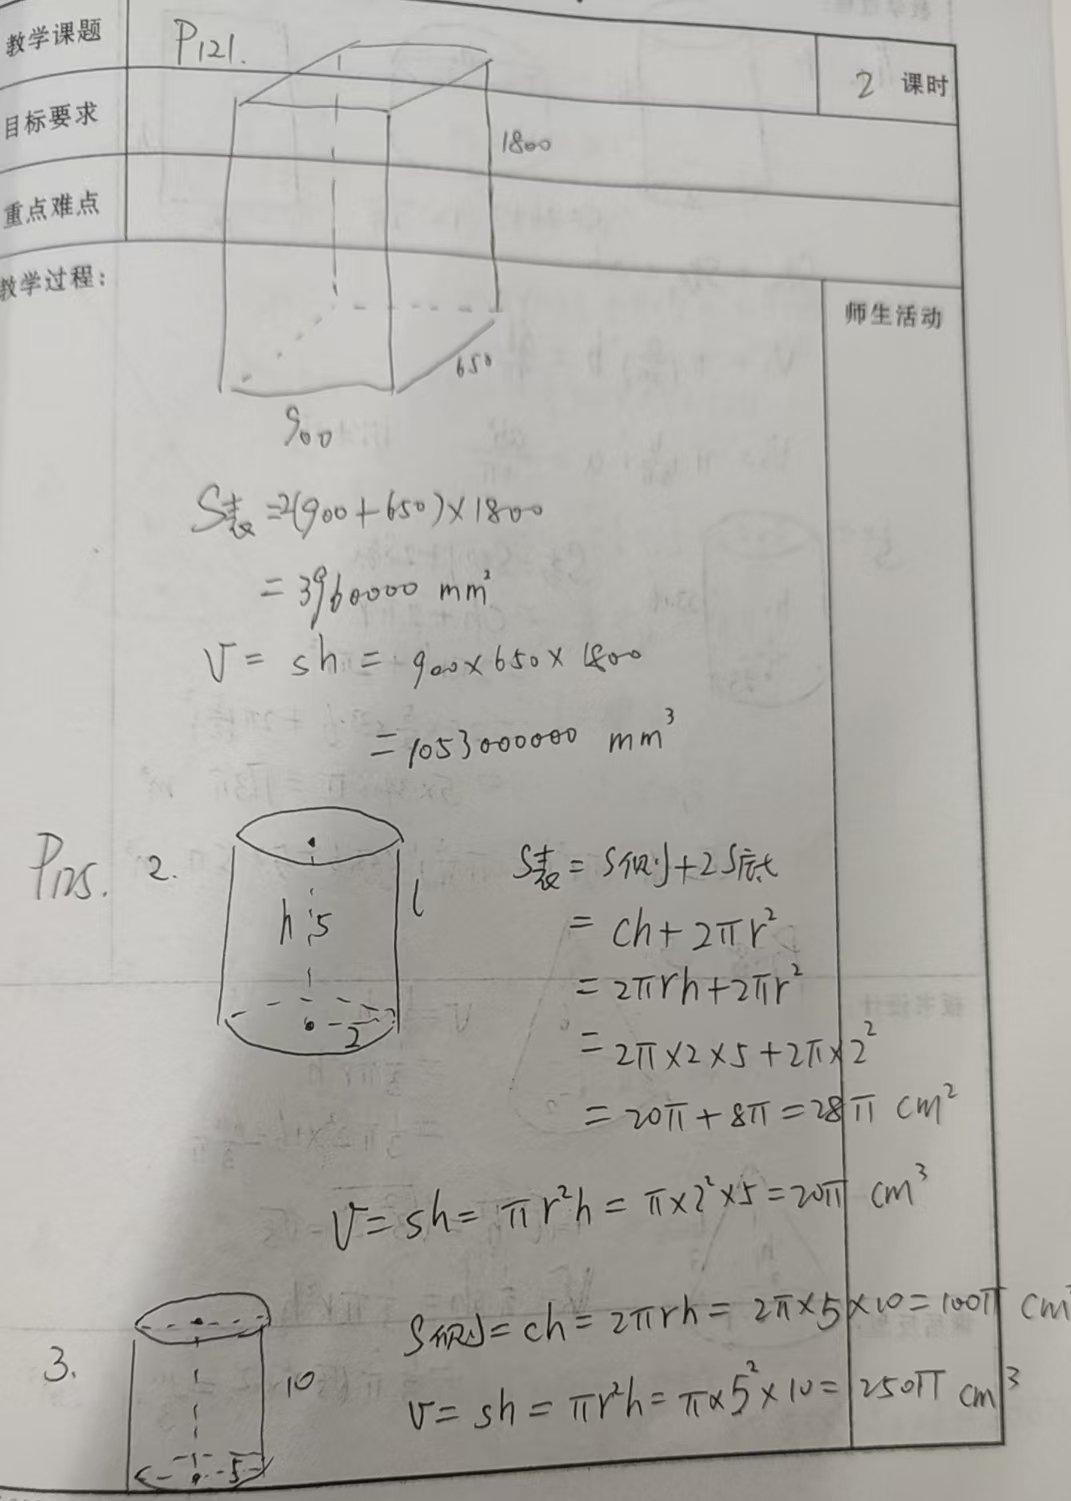 教学课题
P121.
2 课时
目标要求
1800
重点难点
教学过程:
师生活动
650
900
S表=2(900+650)×1800
=3960000 mm²
V= sh = 900×650×1800
=1053000000 mm³
P125. 2.
h 5
l
2
S表= S侧+2S底
= ch+2πr²
=2πrh+2πr²
=2π×2×5+2π×2²
=20π+8π=28π cm²
V= sh= πr²h= π×2²×5=20π cm³
3.
10
5
S侧= ch= 2πrh= 2π×5×10=100π cm²
V= sh = πr²h=π×5²×10= 250π cm³